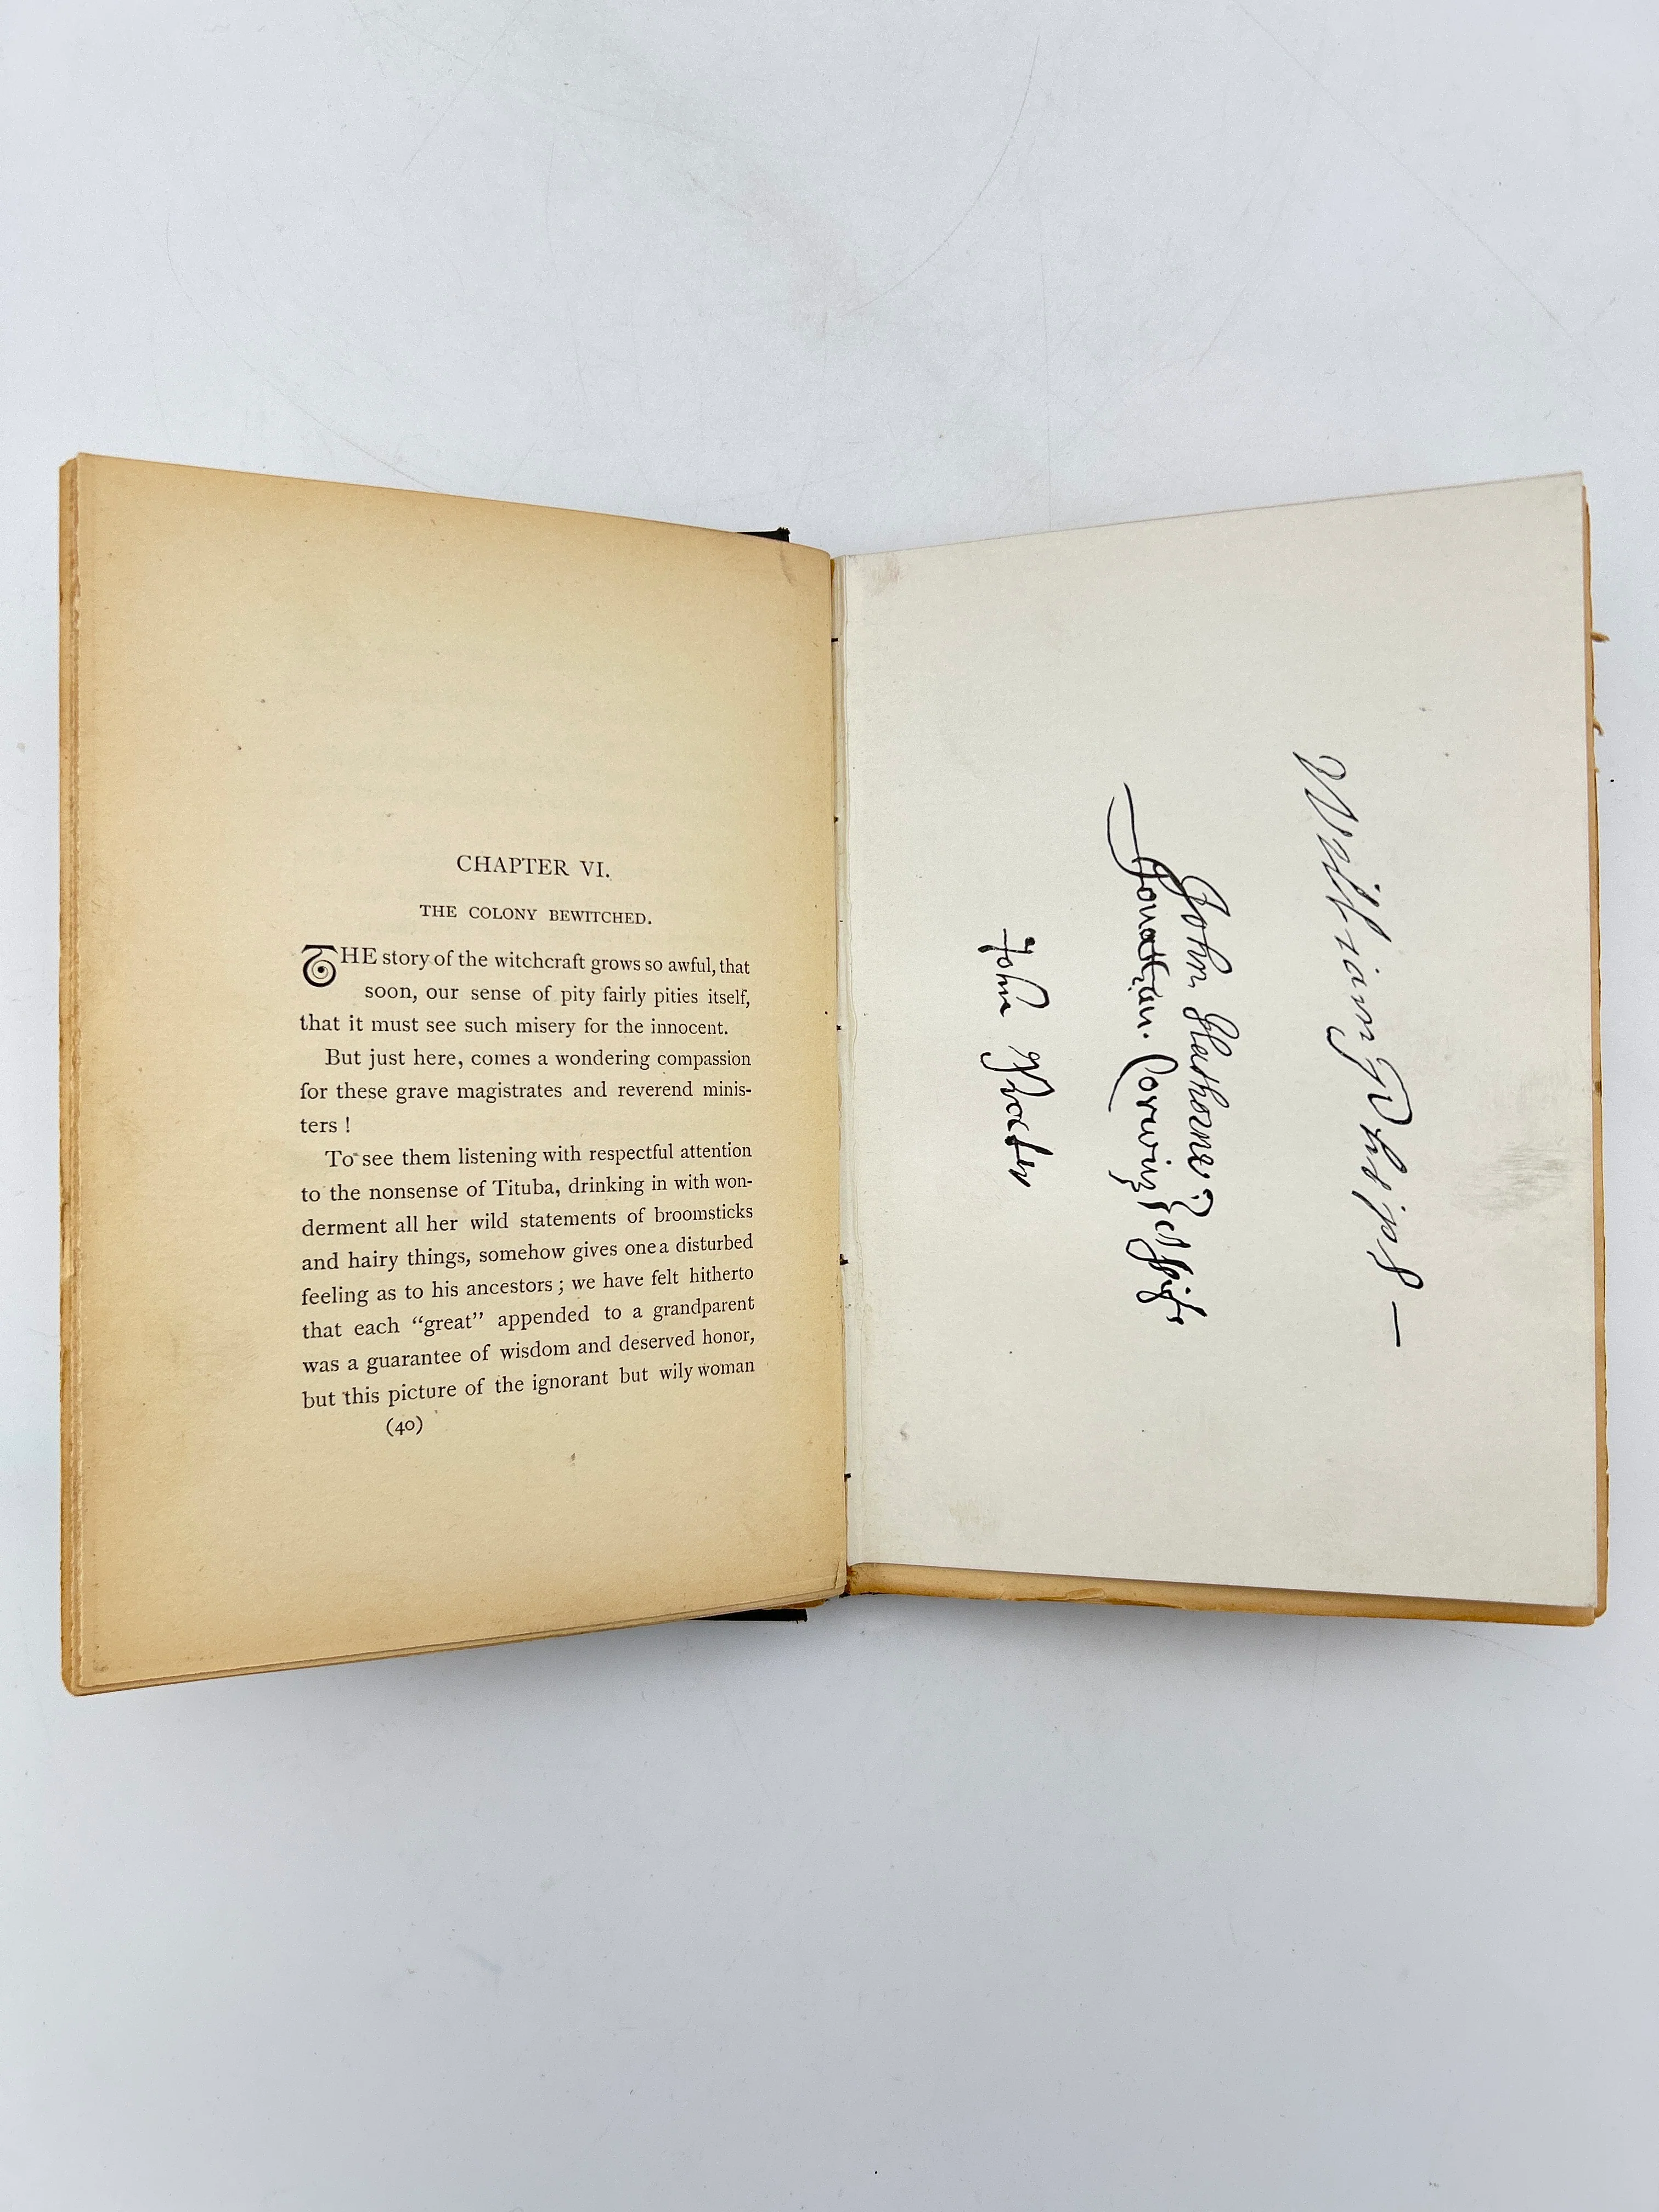 CHAPTER VI.
THE COLONY BEWITCHED.
THE story of the witchcraft grows so awful, that
soon, our sense of pity fairly pities itself,
that it must see such misery for the innocent.
But just here, comes a wondering compassion
for these grave magistrates and reverend minis-
ters!
To see them listening with respectful attention
to the nonsense of Tituba, drinking in with won-
derment all her wild statements of broomsticks
and hairy things, somehow gives one a disturbed
feeling as to his ancestors; we have felt hitherto
that each “great” appended to a grandparent
was a guarantee of wisdom and deserved honor,
but this picture of the ignorant but wily woman
(40)
William Phips —
John Hathorne
Jonathan. Corwin
John